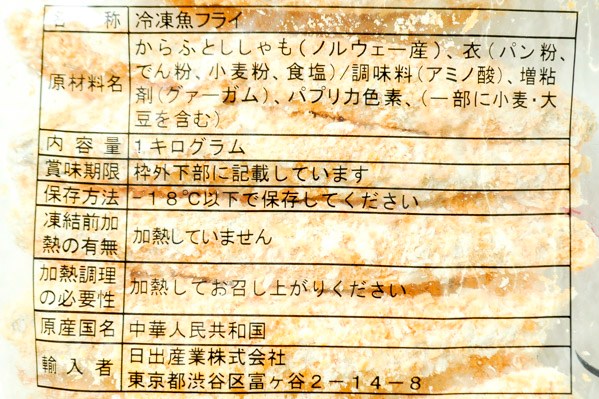 名称 冷凍魚フライ
原材料名 からふとししゃも(ノルウェー産)、衣(パン粉、
でん粉、小麦粉、食塩)/調味料(アミノ酸)、増粘
剤(グァーガム)、パプリカ色素、(一部に小麦・大
豆を含む)
内容量 1キログラム
賞味期限 枠外下部に記載しています
保存方法 -18℃以下で保存してください
凍結前加
熱の有無 加熱していません
加熱調理
の必要性 加熱してお召し上がりください
原産国名 中華人民共和国
輸入者 日出産業株式会社
東京都渋谷区富ヶ谷2-14-8